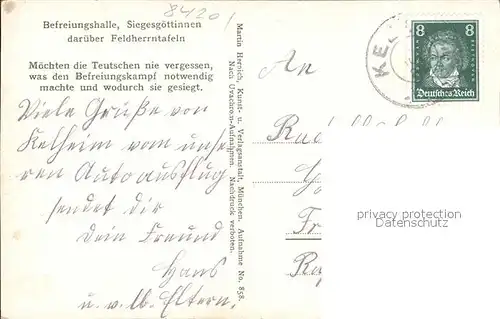 8420
Befreiungshalle, Siegesgöttinnen
darüber Feldherrntafeln
Möchten die Teutschen nie vergessen,
was den Befreiungskampf notwendig
machte und wodurch sie gesiegt.
Viele Grüße von
Kelheim vom unse-
ren Autoausflug
sendet dir
Dein Freund
Hans
u. w. Ib. Eltern.
Martin Herpich, Kunst- u. Verlagsanstalt, München. Aufnahme No. 858.
Nach Uvachrom-Aufnahmen. Nachdruck verboten.
An
KEL
8 8
Deutsches Reich
privacy protection
Datenschutz